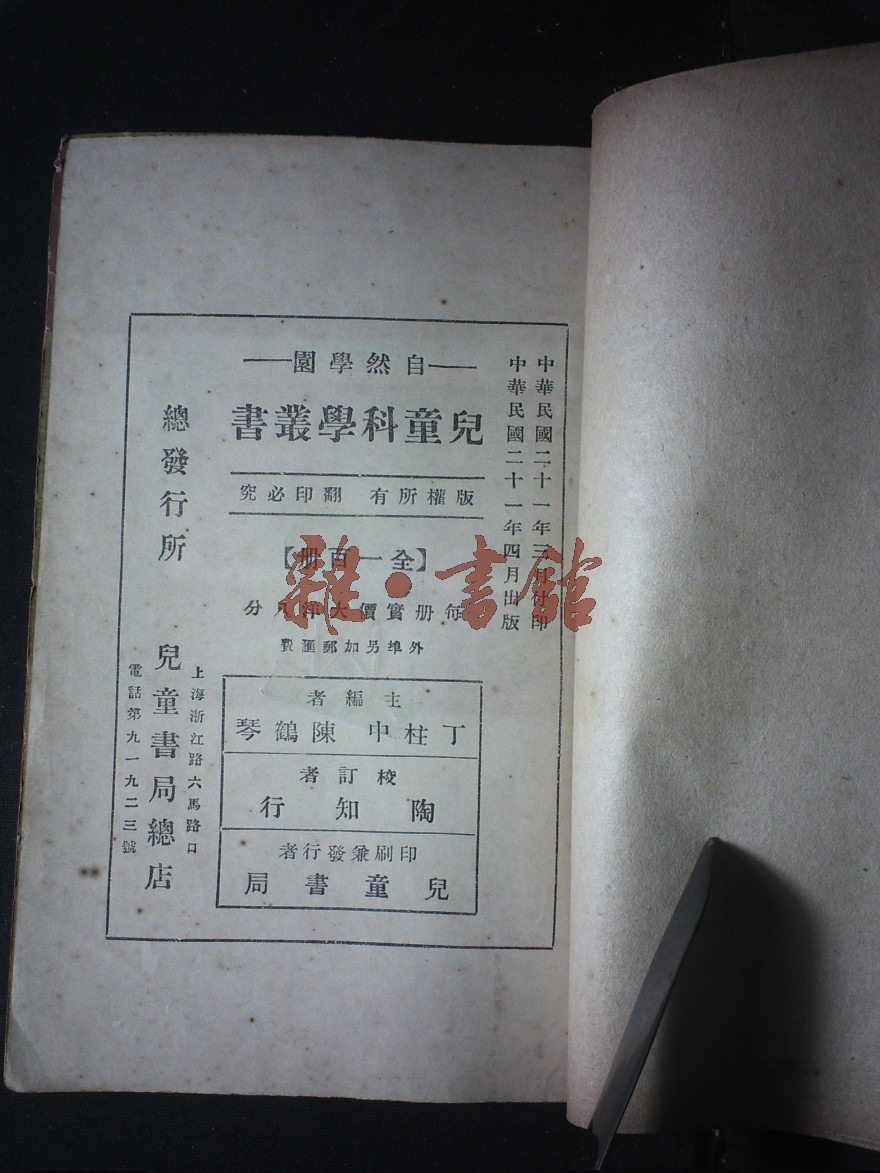 中華民國二十一年三月付印
中華民國二十一年四月出版
——自然學園——
兒童科學叢書
版權所有 翻印必究
【全一百册】
每册實價大洋八分
外埠另加郵匯費
主編者
丁柱中 陳鶴琴
校訂者
陶知行
印刷兼發行者
兒童書局
總發行所
上海浙江路六馬路口
兒童書局總店
電話第九一九二三號
雜·書館